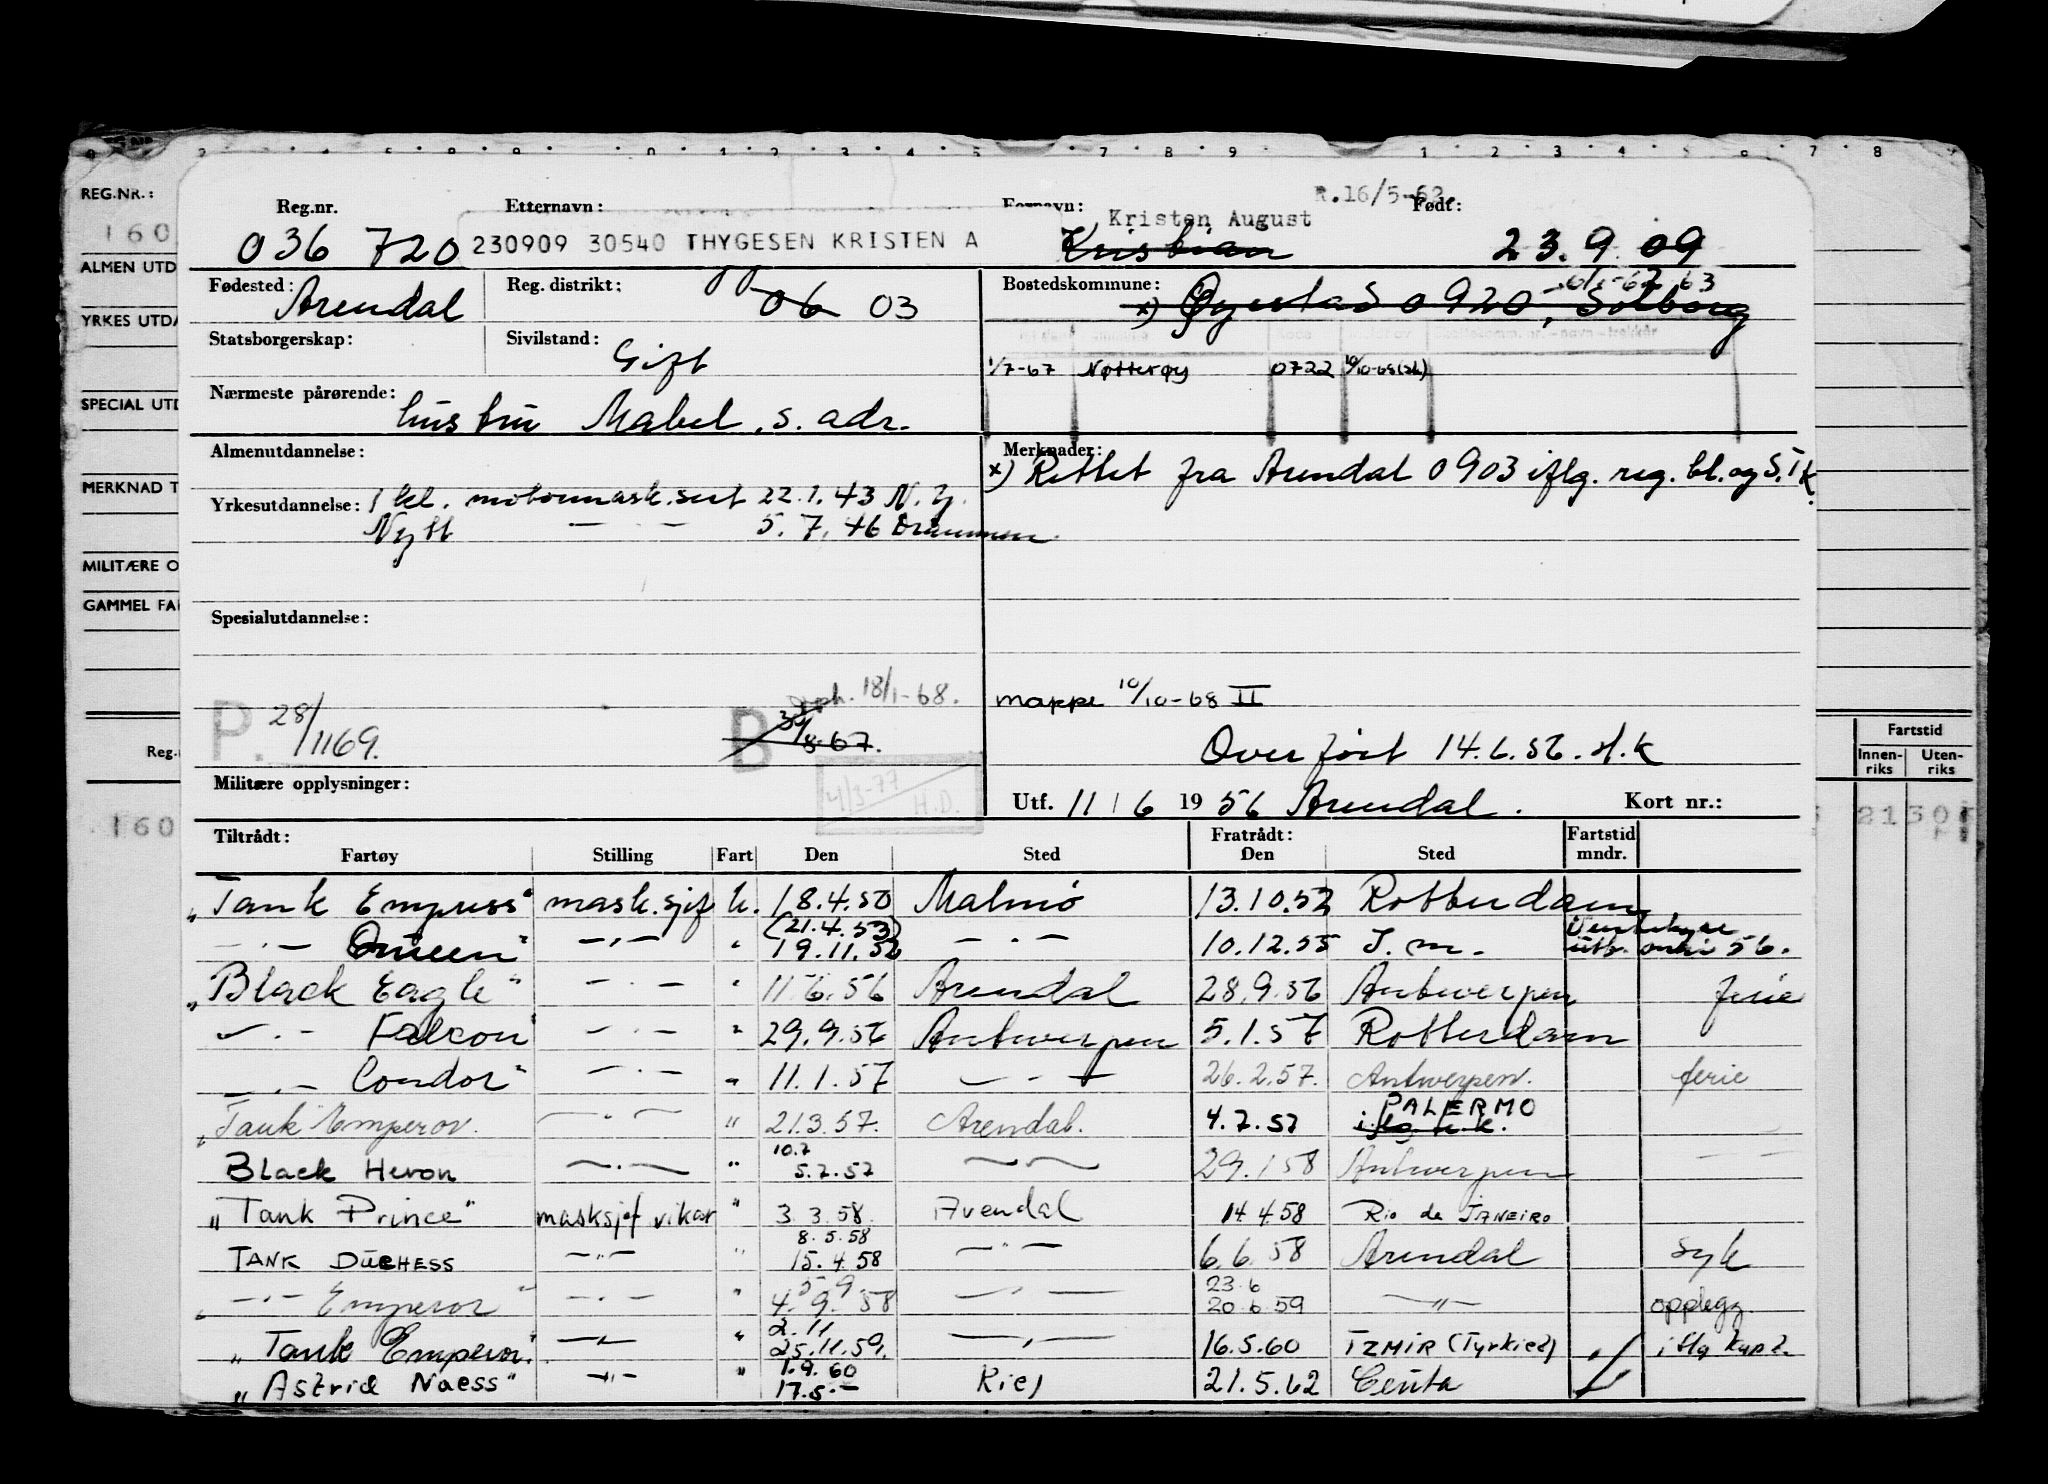 REG.NR.:
160
ALMEN UTD
YRKES UTDA
SPECIAL UTD
MERKNAD T
MILITÆRE O
GAMMEL FA
Reg.
160
R.16/5-62.
Reg.nr. Etternavn: Fornavn: Født:
036 720 230909 30540 THYGESEN KRISTEN A Kristen August Kristian 23.9.09
Fødested: Arendal Reg. distrikt: 06 03 Bostedskommune: x) Øyestad 0920, Solborg
Statsborgerskap: Sivilstand: Gift
1/7-67 Nøtterøy 0722 10/10-68
Nærmeste pårørende: hustru Mabel, s. adr.
Almenutdannelse: Merknader:
x) Rettet fra Arendal 0903 iflg. reg. bl. og S.T.K.
Yrkesutdannelse: 1 kl. motormask.sert 22.1.43 N.Y.
Nytt — . — 5.7.46 Drammen
Spesialutdannelse:
P. 28/1169. B 8-67. oph. 18/1-68.
mappe 10/10-68 II
Overført 14.6.56.
Militære opplysninger: 4/3-77 H.D.
Utf. 11/6 1956 Arendal. Kort nr.:
Fartstid
Innen-riks Uten-riks
21 30
Tiltrådt: Fratrådt: Fartstid mndr.
Fartøy Stilling Fart Den Sted Den Sted
"Tank Empress" mask.sjef u. 18.4.50 Malmø 13.10.52 Rotterdam
— . — Queen" — . — " (21.4.53) 19.11.52 — . — 10.12.55 56.
"Black Eagle" — . — " 11.6.56 Arendal 28.9.56 Antwerpen ferie
— . — Falcon" — . — " 29.9.56 Antwerpen 5.1.57 Rotterdam
— . — Condor" — . — " 11.1.57 — . — 26.2.57. Antwerpen. ferie
"Tank Emperor. — . — " 21.3.57. Arendal. 4.7.57 PALERMO
Black Heron — . — " 10.7 5.7.57 — . — 29.1.58 Antwerpen
"Tank Prince" masksjef vikar " 3.3.58 Arendal 14.4.58 Rio de JANEIRO
TANK DUCHESS — " — " 8.5.58 15.4.58 — " — 6.6.58 Arendal syk
— . — Emperor" — . — " 5 9 4.9.58 — . — 23.6 20.6.59 — " — opplegg.
"Tank Emperor." — " — " 2.11 25.11.59. — . — 16.5.60 IZMIR (Tyrkiet) iflg kapt.
"Astrid Naess" — " — " 1.9.60 17.5.— Kiel 21.5.62 Ceuta